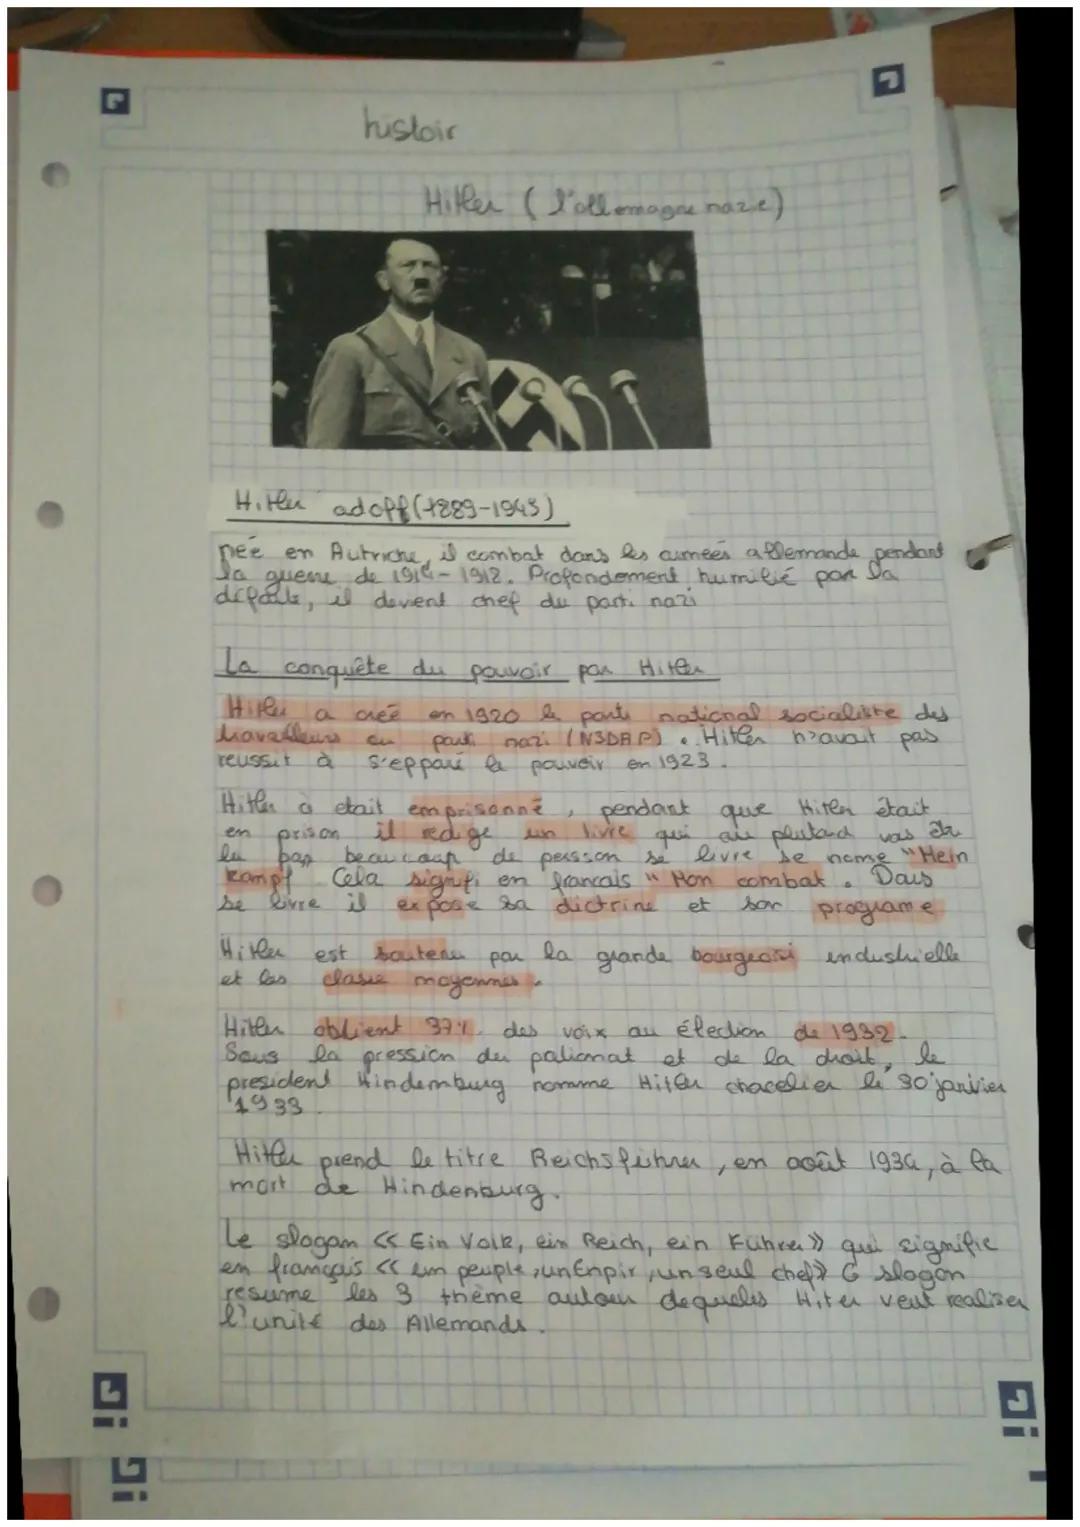 histoir
Hitler ( l'allemagne nazie)
Hitler adolf (1889-1945)
née en Autriche, il combat dans les armées allemande pendant
la guerre de 1914-1918. Profondement humilié par la
défaite, il devent chef du parti nazi
La conquête du pouvoir par Hitler
Hitler a creé en 1920 le parti national socialiste des
travailleurs ou parti nazi (NSDAP). Hitler n'avait pas
reussit à s'epparé le pouvoir en 1923.
Hitler a etait emprisonné, pendant que Hitler était
en prison il redige un livre qui au plutard vas être
lu par beaucoup de persson se livre se nome "Mein
Kampf Cela signifi en francais " Mon combat. Dans
se livre il expose sa dictrine et son programe
Hitler est soutenu par la grande bourgeoisi industrielle
et les classe moyennes.
Hitler obtient 37% des voix au élection de 1932.
Sous la pression du pationat et de la droit, le
president Hindemburg nomme Hitler chacelier le 30 janvier
1933.
Hitler prend le titre Reichsführer, en août 1934, à la
mort de Hindenburg.
Le slogan << Ein Volk, ein Reich, ein Führer >> qui signifie
en français << un peuple, un Enpir, un seul chef>> slogan
resume les 3 thème autour dequelis Hiter veut realiser
l'unité des Allemands.